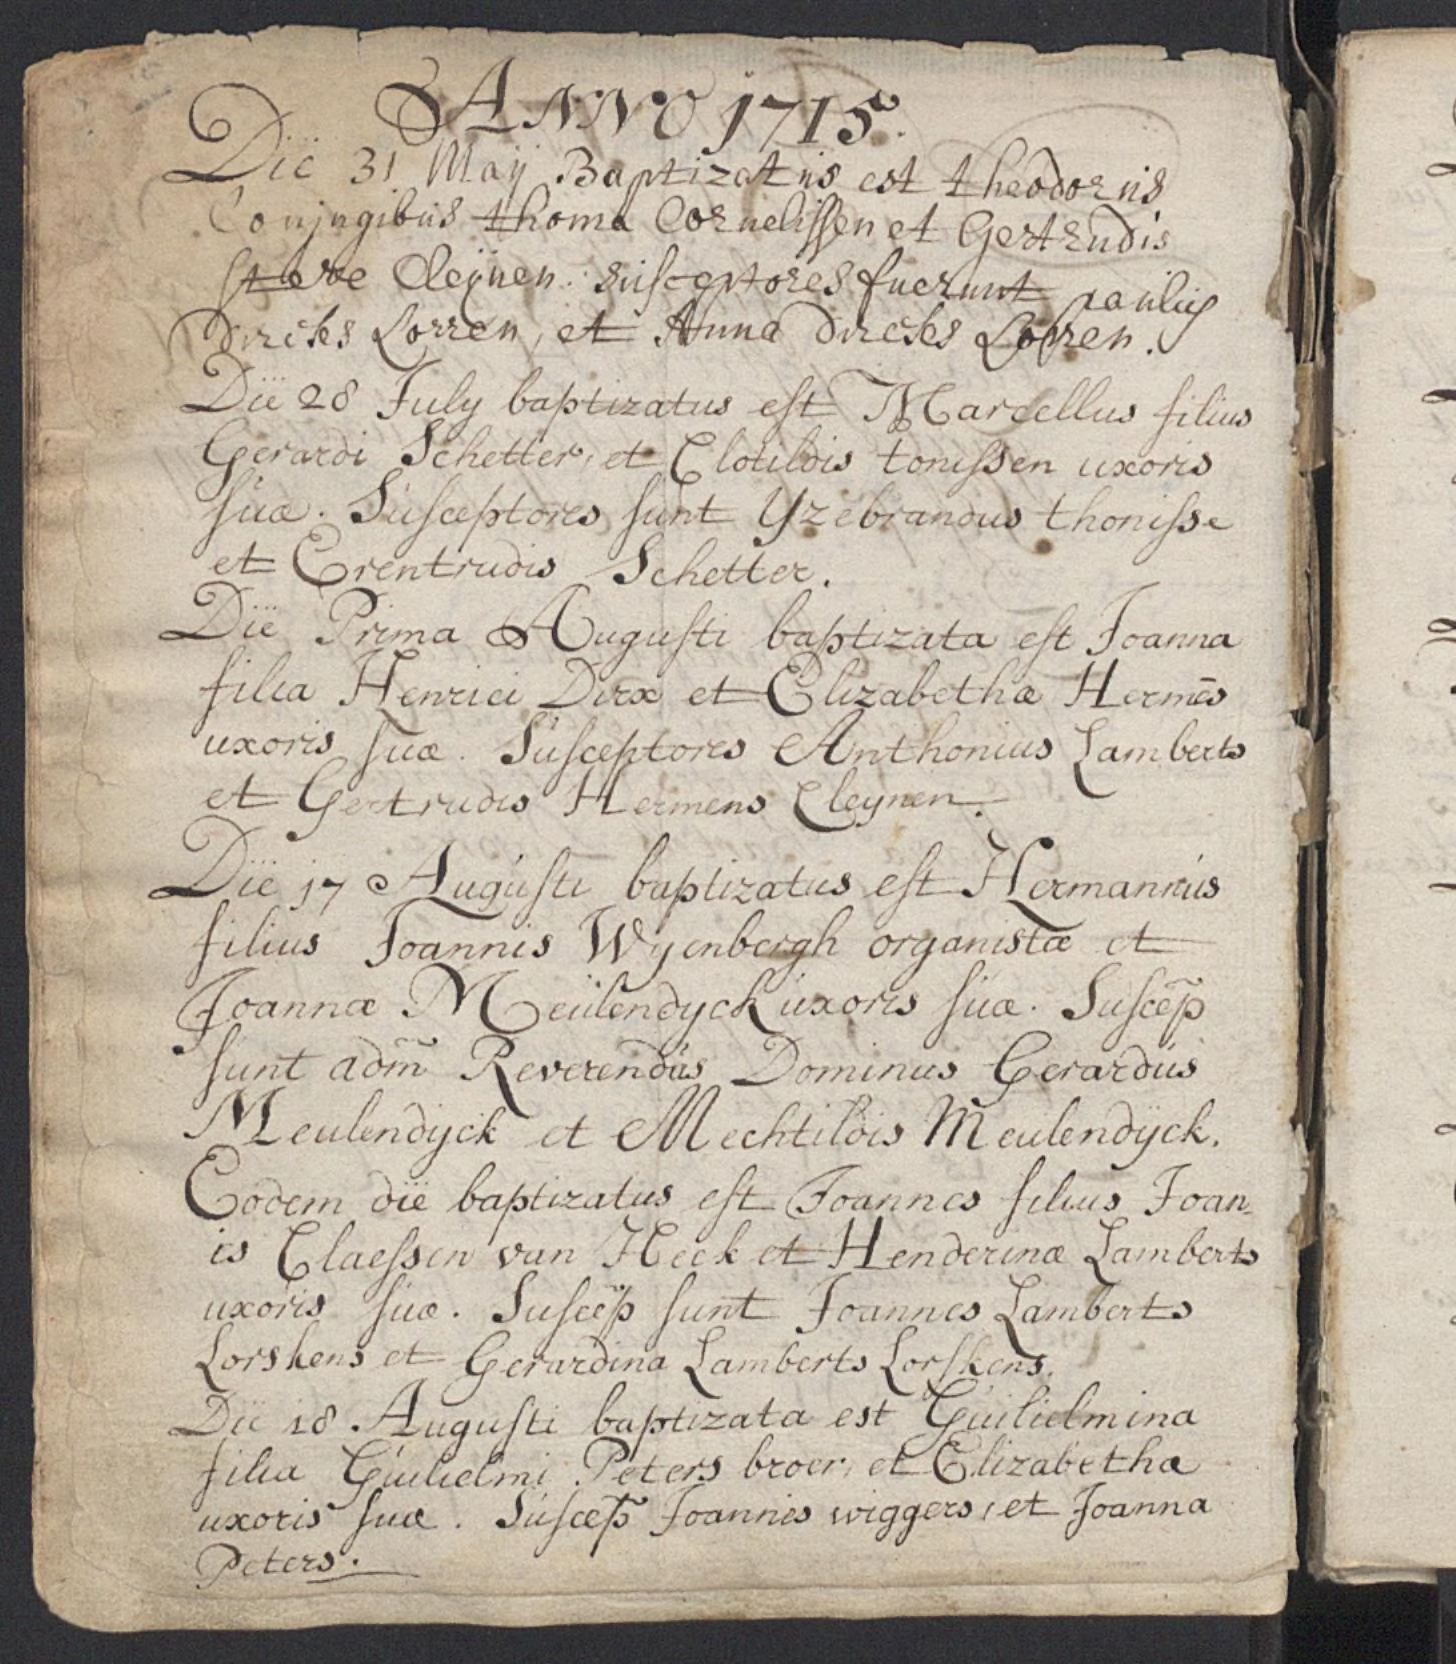 ANNO 1715.
Die 31 Maÿ Baptizatus est theodorus
Conjugibus thoma Cornelissen et Gertrudis
Cleijnen. susceptores fuerunt paulus
dircks Lorren, et Anna dircks Lorren.
Die 28 July baptizatus est Marcellus filius
Gerardi Schetter, et Clotildis tonissen uxoris
suæ. Susceptores sunt Yzebrandus thonisse
et Erentrudis Schetter.
Die Prima Augusti baptizata est Joanna
filia Henrici Dirx et Elizabethæ Hermēs
uxoris suæ. Susceptores Anthonius Lamberts
et Gertrudis Hermens Cleynen.
Die 17 Augusti baptizatus est Hermannus
filius Joannis Wyenbergh organistæ et
Joannæ Meulendyck uxoris suæ. Suscep̄
sunt adm̄ Reverendus Dominus Gerardus
Meulendÿck et Mechtildis Meulendÿck.
Eodem die baptizatus est Joannes filius Joan-
is Claessen van Heek et Henderinæ Lamberts
uxoris suæ. Suscep̄ sunt Joannes Lamberts
Lorskens et Gerardina Lamberts Lorskens.
Die 18 Augusti baptizata est Guilielmina
filia Guilielmi Peters broer, et Elizabetha
uxoris suæ. Suscep̄ Joannes wiggers, et Joanna
Peters.